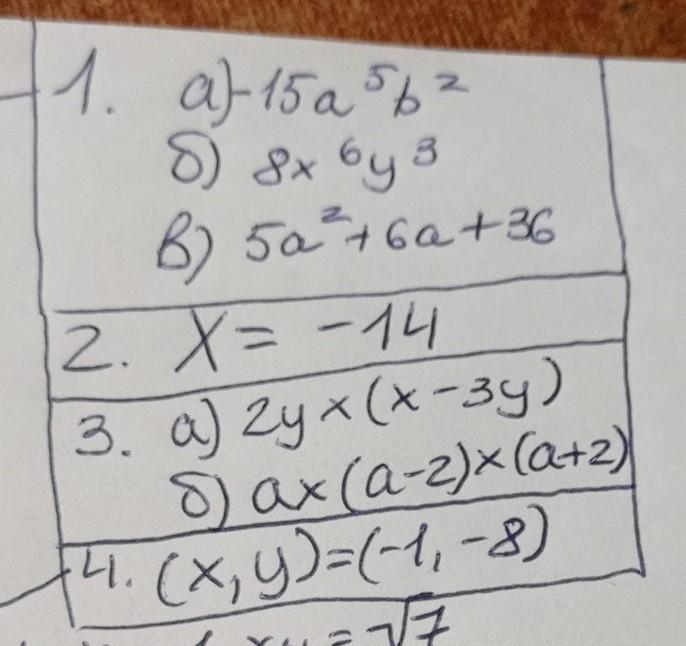 1. а) -15a⁵b²
б) 8x⁶y³
в) 5a²+6a+36
2. X = -14
3. а) 2y×(x-3y)
б) a×(a-2)×(a+2)
4. (x,y)=(-1,-8)
xy=√7